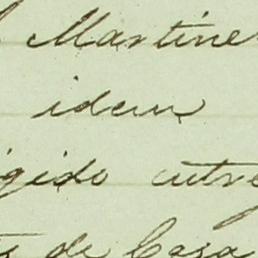 Martine
idem
igido entre
de Casa